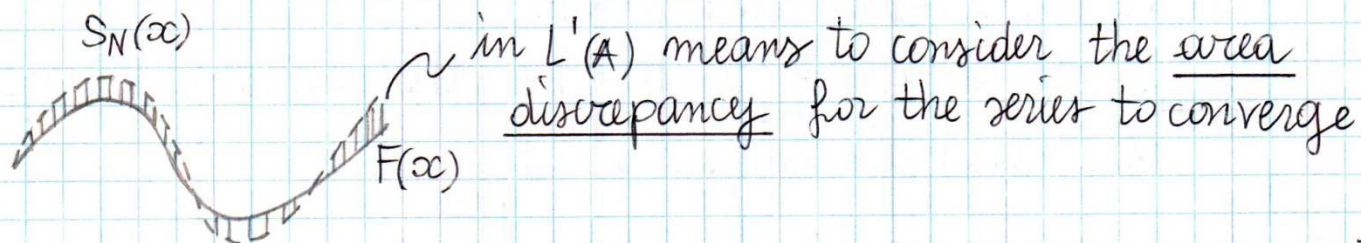 S_N(x)
in L'(A) means to consider the area
discrepancy for the series to converge
F(x)